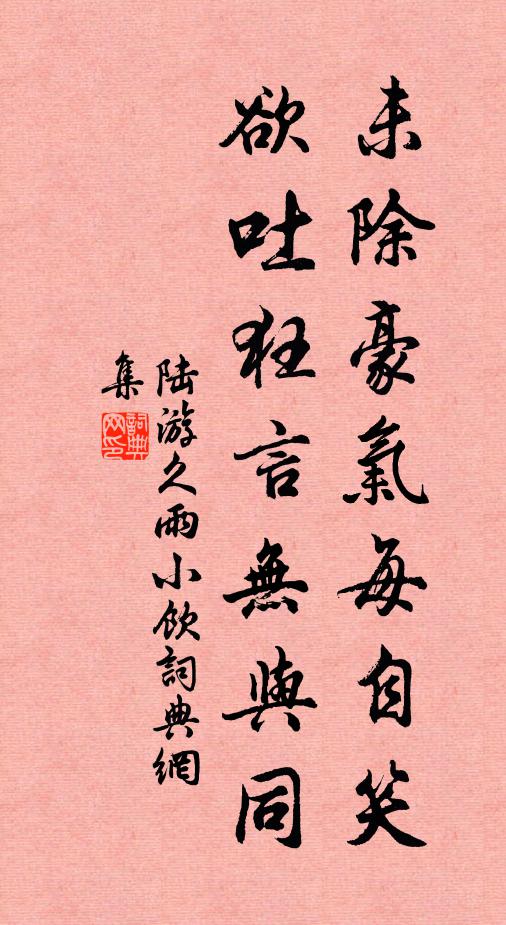 未除豪氣每自笑
欲吐狂言無與同
陆游久雨小飲詞典網
集
詞典
网印